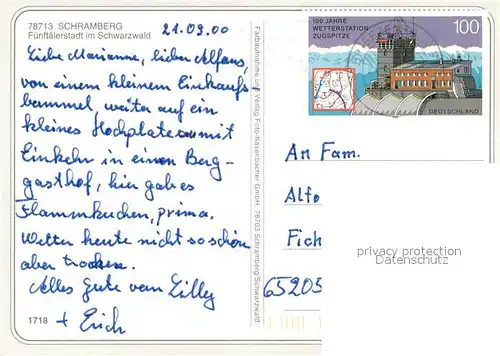 78713 SCHRAMBERG
Fünftälerstadt im Schwarzwald
21.09.00
Liebe Marianne, lieber Alfons,
von einem kleinem Einkaufs
bummel weiter auf ein
kleines Hochplateau mit
Einkehr in einen Berg-
gasthof, hier gab es
Flammkuchen, prima.
Wetter heute nicht so schön
aber trocken.
Alles Gute von Lilly
+ Erich
1718
Farbaufnahme und Verlag Foto-Kasenbacher GmbH · 78703 Schramberg/Schwarzwald
100 JAHRE
WETTERSTATION
ZUGSPITZE
100
DEUTSCHLAND
An Fam.
Alfo
Fich
65205
privacy protection
Datenschutz